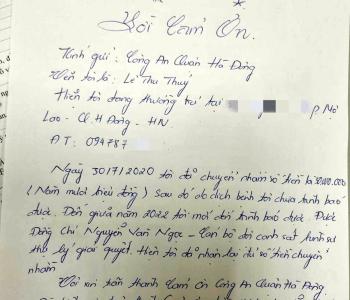 Lời Cảm Ơn.
Kính gửi: Công An Quận Hà Đông
Tên tôi là: Lê Thu Thuỷ
Hiện tôi đang thường trú tại P Mộ
Lao - Q. H Đông - HN
ĐT: 094787
Ngày 30/7/2020 tôi đã chuyển nhầm số tiền là
(Năm mươi triệu đồng) Sau đó do dịch bệnh tôi chưa trình báo
được. Đến giữa năm 2022 tôi mới đi trình báo được. Được
Đồng Chí Nguyễn Văn Ngọc - Cán bộ đội cảnh sát hình sự
thụ lý giải quyết. Hiện tôi đã nhận lại đủ số tiền chuyển
nhầm
Tôi xin chân thành cảm ơn Công An Quận Hà Đông